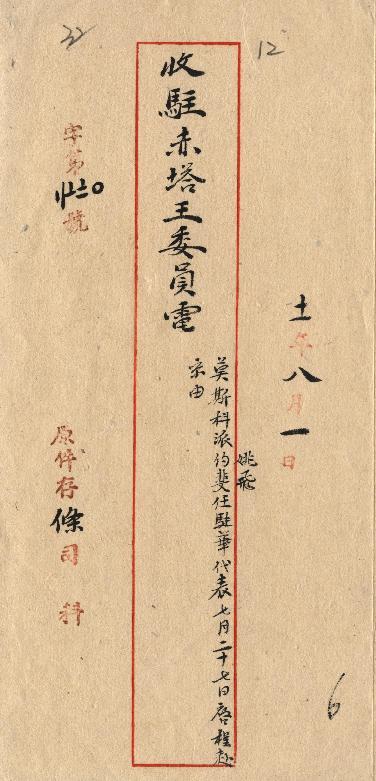 12
土年八月一日
收駐赤塔王委員電
姚飛
莫斯科派約斐任駐華代表七月二十七日啓程赴
京由
22
字第號
原件存條司科
6